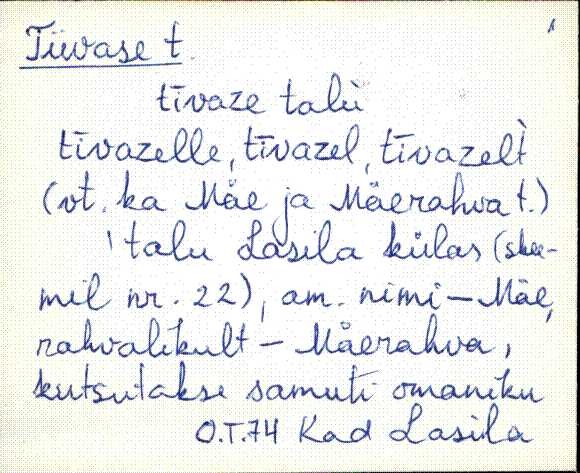 1
Tiivase t.
tīvaze talu
tīvazelle, tīvazel, tīvazelt
(vt. ka Mäe ja Mäerahva t.)
talu Lasila külas (skee-
mil nr. 22), am. nimi – Mäe,
rahvalikult – Mäerahva,
kutsutakse samuti omaniku
O.T.74 Kad Lasila